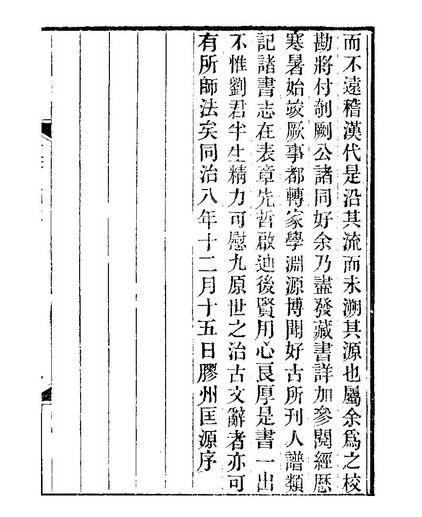 而不遠稽漢代是沿其流而未溯其源也屬余爲之校
勘將付剞劂公諸同好余乃盡發藏書詳加參閱經歷
寒暑始竣厥事都轉家學淵源博聞好古所刊人譜類
記諸書志在表章先哲啟迪後賢用心良厚是書一出
不惟劉君半生精力可慰九原世之治古文辭者亦可
有所師法矣同治八年十二月十五日膠州匡源序